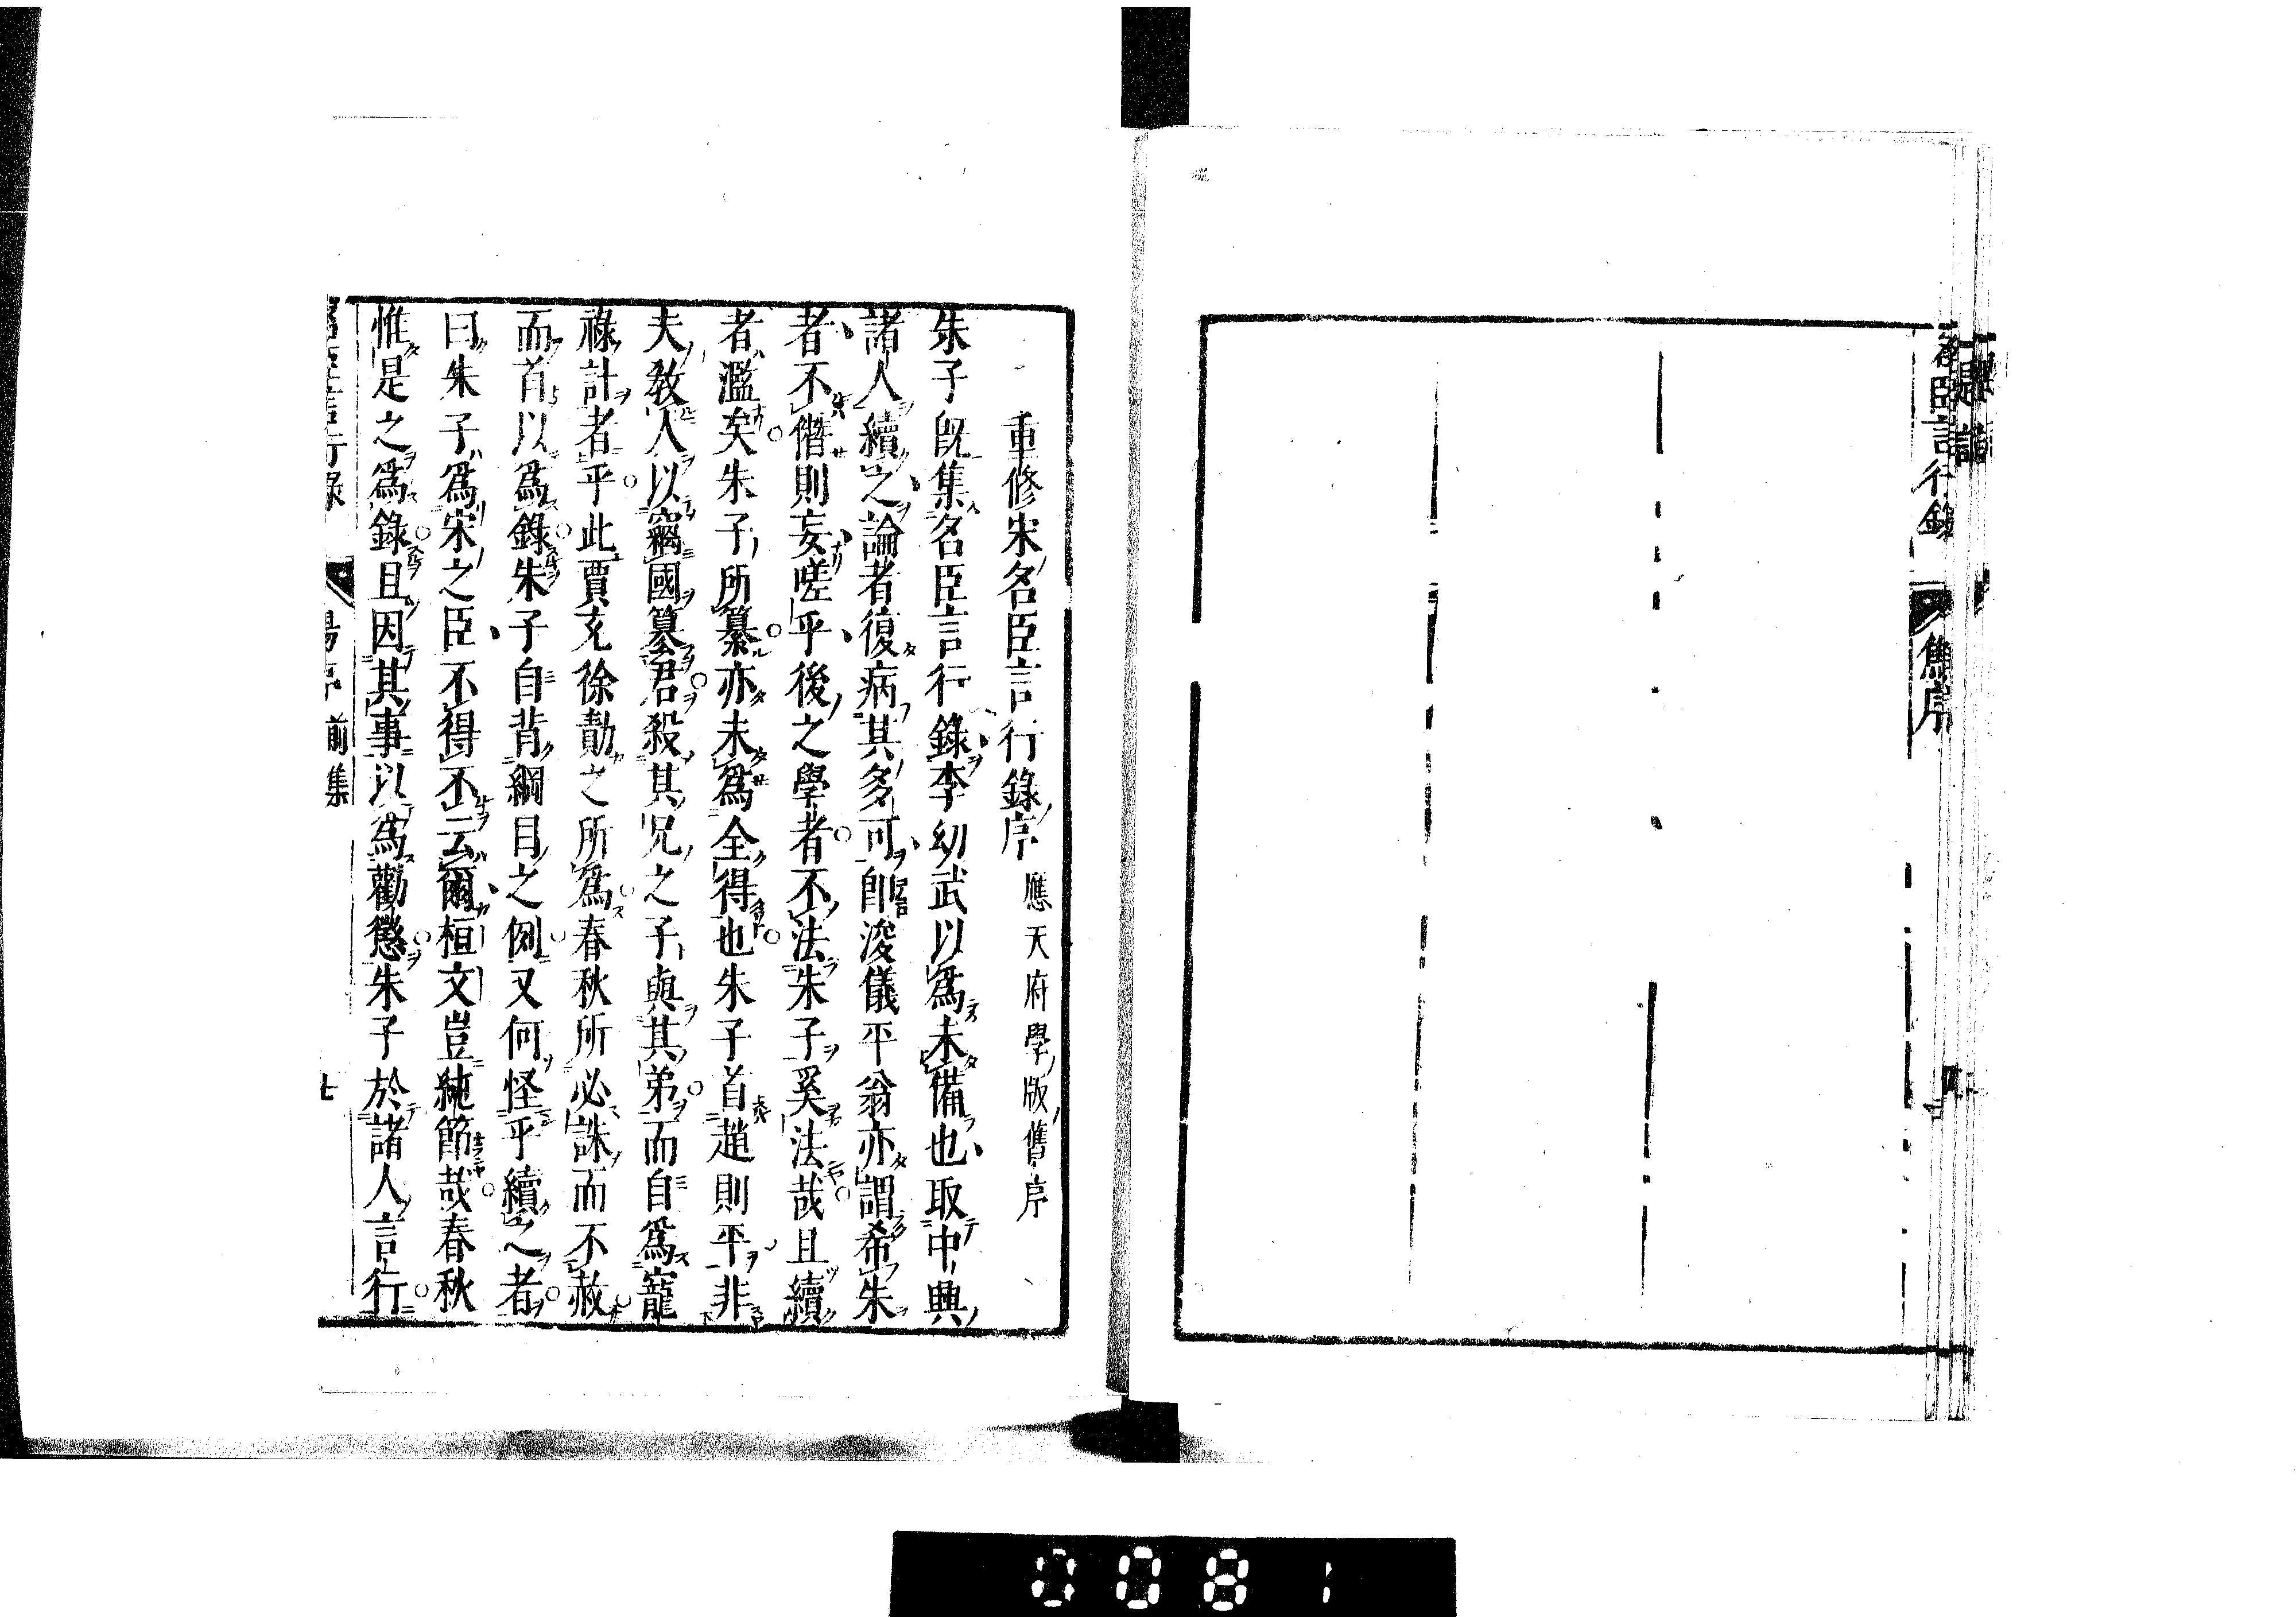 名臣言行錄
焦序
重修宋名臣言行錄序 應天府學版舊序
朱子旣集名臣言行錄李幼武以爲未備也取中興
諸人續之論者復病其多可卽浚儀平翁亦謂希朱
者不僭則妄嗟乎後之學者不法朱子奚法哉且續
者濫矣朱子所纂亦未爲全得也朱子首趙則平非
夫敎人以竊國篡君殺其兄之子與其弟而自爲寵
祿計者乎此賈充徐勣之所爲春秋所必誅而不赦
而首以爲錄朱子自背綱目之例又何怪乎續之者
曰朱子爲宋之臣不得不云爾桓文豈純節哉春秋
惟是之爲錄且因其事以爲勸懲朱子於諸人言行
前集
七
0081